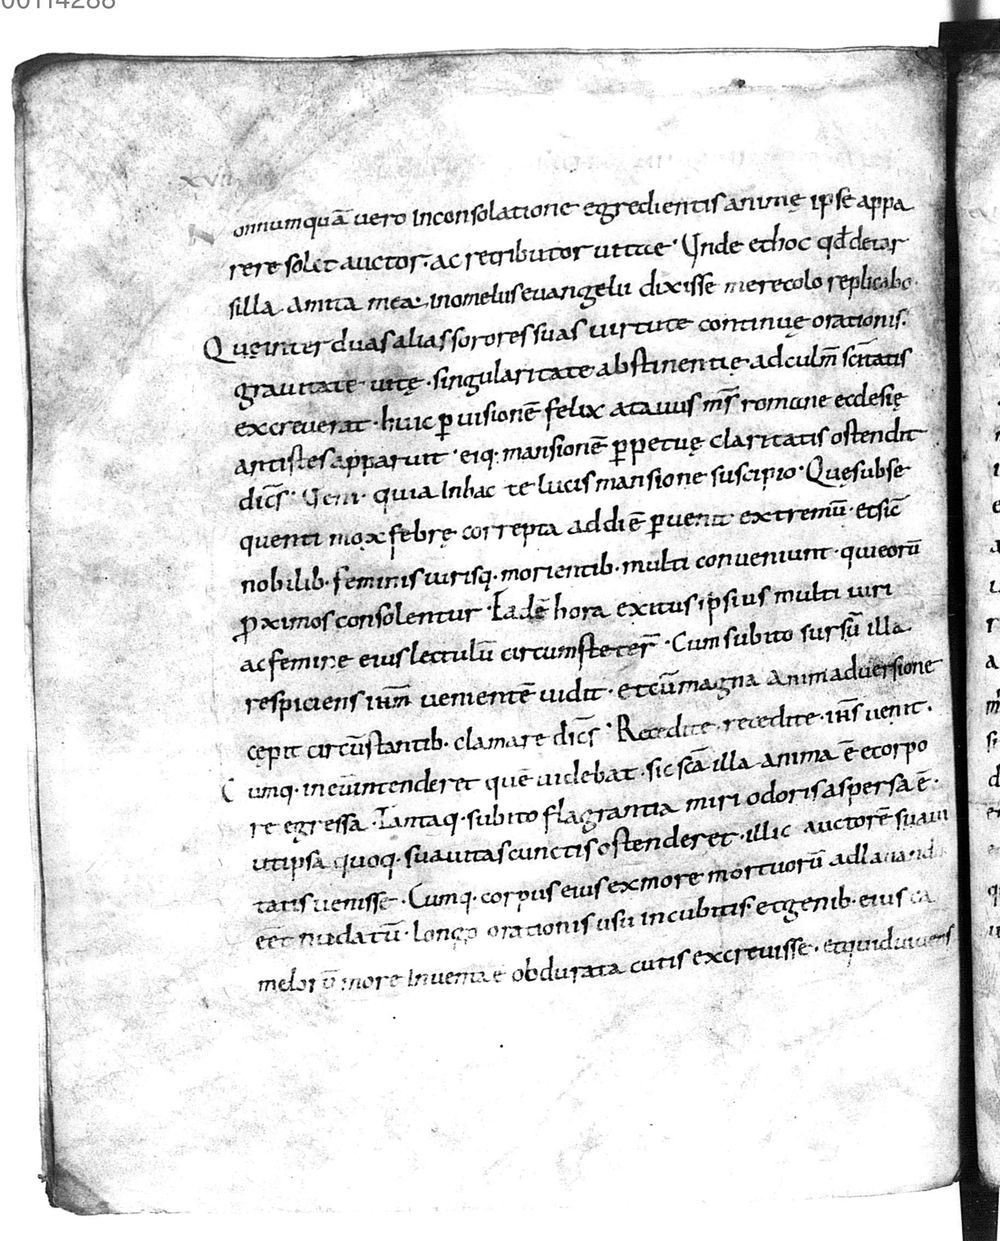 00114288
XVII
Nonnumquā uero inconsolatione egredientis animę ipse appa
rere solet auctor · ac retributor uitae · Unde et hoc qđ detar
silla · amita mea · inomeliis euangelii dixisse merecolo replicabo ·
Quęinter duas alias sorores suas uirtute continuę orationis ·
grauitate uitę · singularitate abstinentię adculm̄ scītatis
excreuerat · huic ꝑ uisionē felix atauus m̄s romane ecclesię
antistes apparuit · eiq· mansionē ꝑpetuę claritatis ostendit
dic̄s · Ueni · quia inhac te lucis mansione suscipio · Quęsubse
quenti mox febrę correpta addiē ꝑuenit extremū · etsic̄
nobilib· feminis uirisq· morientib· multi conueniunt · quieorū
ꝓximos consolentur · Eadē hora exitus ipsius multi uiri
ac feminę eius lectulū circumstetер̄ · Cum subito sursū illa
respiciens ih̄m uenientē uidit · et cū magna animaduersione
cepit circūstantib· clamare dic̄s · Recedite · recedite · ih̄s uenit ·
Cumq· ineū intenderet quē uidebat · sic sc̄a illa anima ē ecorpo
re egressa · Tantaq· subito flagrantia miri odoris aspersa ē ·
ut ipsa quoq· suauitas cunctis ostenderet · illic auctorē suaui
tatis uenisse · Cumq· corpus eius exmore mortuorū adlauandū
eēt nudatū · longo orationis usu incubitis et genib· eius ca
melorū more inuenta ē obdurata cutis excreuisse · et quid uiuens